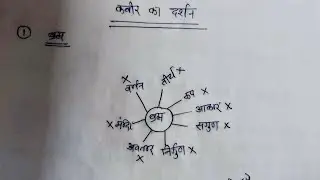 कबीर का दर्शन
① ब्रह्म
× वर्णन
तीर्थ ×
रूप ×
आकार ×
सगुण ×
ब्रह्म
अवतार ×
निर्गुण ×